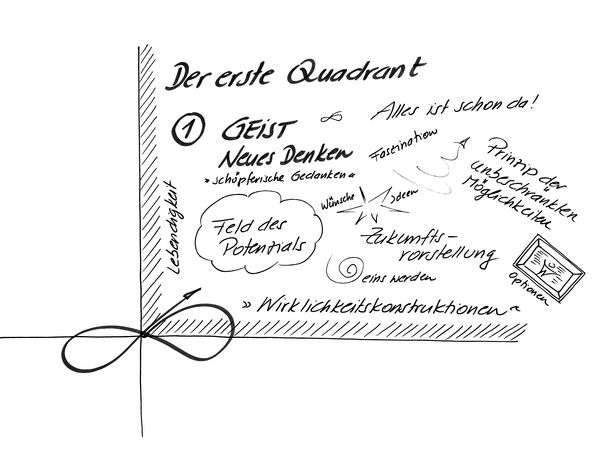 Der erste Quadrant
∞ Alles ist schon da!
1 GEIST
Neues Denken
"schöpferische Gedanken"
Faszination
Prinzip der
unbeschränkten
Möglichkeiten
Lebendigkeit
Feld des
Potenzials
Wünsche
Ideen
Zukunfts-
vorstellung
eins werden
Optionen
"Wirklichkeitskonstruktionen"